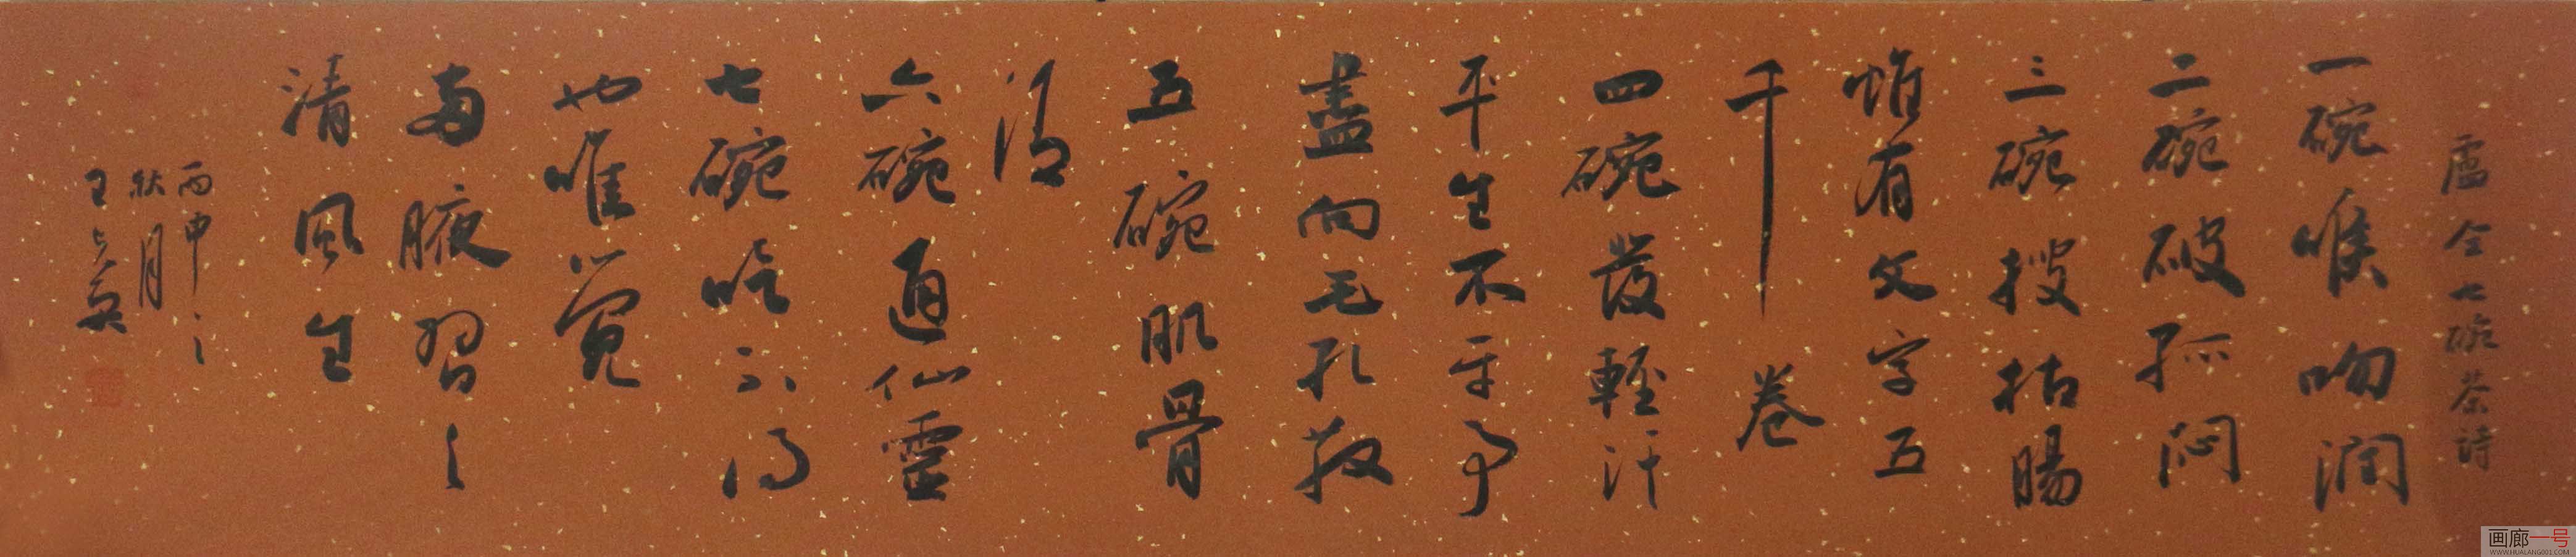 盧仝七碗茶詩
一碗喉吻潤
二碗破孤悶
三碗搜枯腸
惟有文字五
千卷
四碗發輕汗
平生不平事
盡向毛孔散
五碗肌骨
清
六碗通仙靈
七碗吃不得
也唯覺
兩腋習〻
清風生
丙申之
秋月
王
画廊一号
WWW.HUALANG001.COM